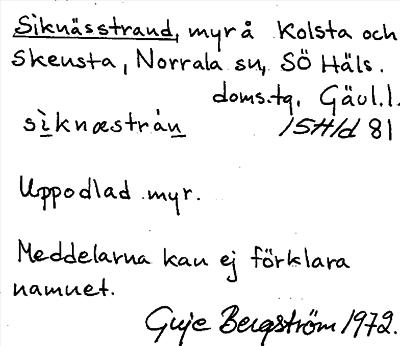 Siknässtrand, myr å Kolsta och
Skensta, Norrala sn, SÖ Häls.
doms.tg. Gävl.l.
siknæstrån 15H1d 81
Uppodlad myr.
Meddelarna kan ej förklara
namnet.
Guje Bergström 1972.